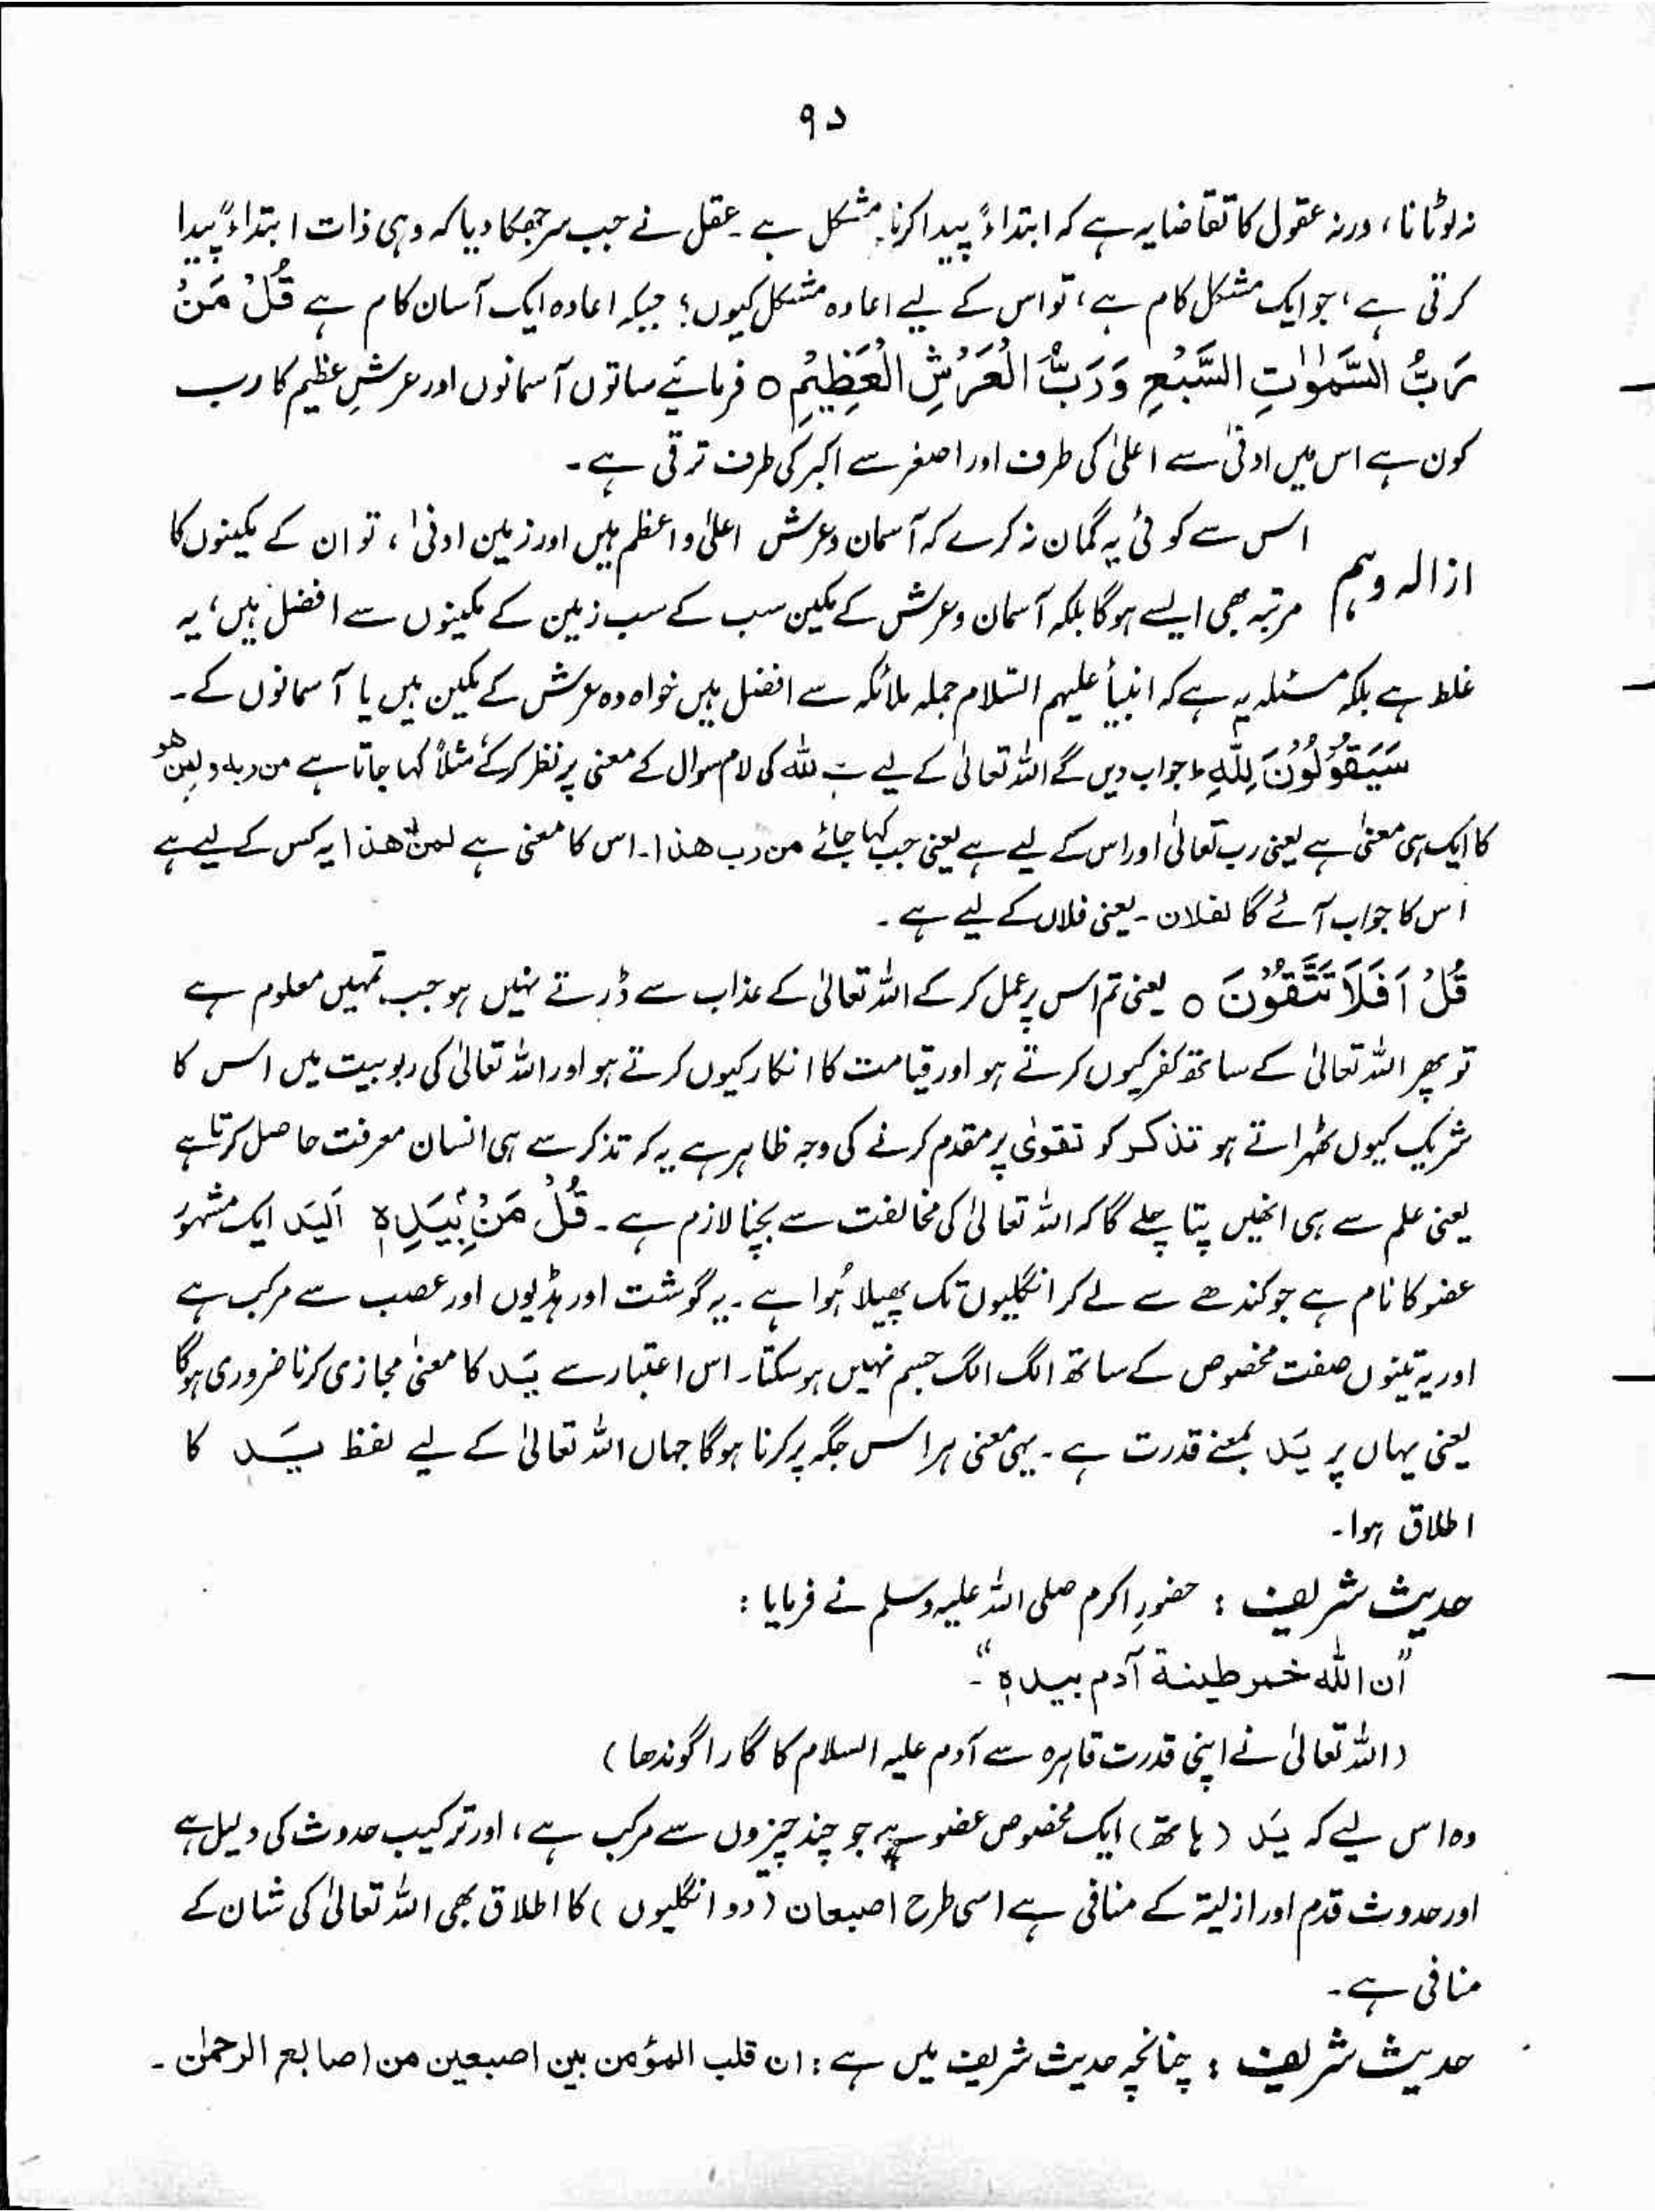 ۹۵
نہ لوٹانا، ورنہ عقول کا تقاضا یہ ہے کہ ابتداءً پیدا کرنا مشکل ہے۔ عقل نے جب سر جھکا دیا کہ وہی ذات ابتداءً پیدا
کرتی ہے، جو ایک مشکل کام ہے، تو اس کے لیے اعادہ مشکل کیوں؛ جبکہ اعادہ ایک آسان کام ہے قُلْ مَنْ
رَبُّ السَّمٰوٰتِ السَّبْعِ وَرَبُّ الْعَرْشِ الْعَظِیْمِ ○ فرمائیے ساتوں آسمانوں اور عرشِ عظیم کا رب
کون ہے اس میں ادنیٰ سے اعلیٰ کی طرف اور اصغر سے اکبر کی طرف ترقی ہے۔
ازالہ وہم
اس سے کوئی یہ گمان نہ کرے کہ آسمان و عرش اعلیٰ و اعظم ہیں اور زمین ادنیٰ، تو ان کے مکینوں کا
مرتبہ بھی ایسے ہوگا بلکہ آسمان و عرش کے مکین سب کے سب زمین کے مکینوں سے افضل ہیں، یہ
غلط ہے بلکہ مسئلہ یہ ہے کہ انبیأ علیہم السّلام جملہ ملائکہ سے افضل ہیں خواہ وہ عرش کے مکین ہیں یا آسمانوں کے۔
سَیَقُوْلُوْنَ لِلّٰهِ ط جواب دیں گے اللہ تعالیٰ کے لیے ہے للہ کی لام سوال کے معنی پر نظر کرکے مثلاً کہا جاتا ہے من ربہ و لمن ھو
کا ایک ہی معنیٰ ہے یعنی رب تعالیٰ اور اس کے لیے ہے یعنی جب کہا جائے من رب ھذا۔ اس کا معنی ہے لمن ھذا یہ کس کے لیے ہے
اس کا جواب آئے گا لفلان۔ یعنی فلاں کے لیے ہے۔
قُلْ اَفَلَا تَتَّقُوْنَ ○ یعنی تم اس پر عمل کر کے اللہ تعالیٰ کے عذاب سے ڈرتے نہیں ہو جب تمہیں معلوم ہے
تو پھر اللہ تعالیٰ کے ساتھ کفر کیوں کرتے ہو اور قیامت کا انکار کیوں کرتے ہو اور اللہ تعالیٰ کی ربوبیت میں اس کا
شریک کیوں ٹھہراتے ہو تذکر کو تقویٰ پر مقدم کرنے کی وجہ ظاہر ہے یہ کہ تذکر سے ہی انسان معرفت حاصل کرتا ہے
یعنی علم سے ہی انھیں پتا چلے گا کہ اللہ تعالیٰ کی مخالفت سے بچنا لازم ہے۔ قُلْ مَنْۢ بِیَدِہٖ اَلیَد ایک مشہور
عضو کا نام ہے جو کندھے سے لے کر انگلیوں تک پھیلا ہُوا ہے۔ یہ گوشت اور ہڈیوں اور عصب سے مرکب ہے
اور یہ تینوں صفت مخصوص کے ساتھ الگ الگ جسم نہیں ہوسکتا۔ اس اعتبار سے یَد کا معنیٰ مجازی کرنا ضروری ہوگا
یعنی یہاں پر یَد بمعنے قدرت ہے۔ یہی معنی ہر اس جگہ پر کرنا ہوگا جہاں اللہ تعالیٰ کے لیے لفظ یَد کا
اطلاق ہوا۔
حدیث شریف : حضورِ اکرم صلی اللہ علیہ وسلم نے فرمایا :
"ان اللّٰہ خمر طینۃ آدم بیدہٖ"۔
(اللہ تعالیٰ نے اپنی قدرت قاہرہ سے آدم علیہ السلام کا گارا گوندھا)
وہ اس لیے کہ یَد (ہاتھ) ایک مخصوص عضو ہے جو چند چیزوں سے مرکب ہے، اور ترکیب حدوث کی دلیل ہے
اور حدوث قدم اور ازلیۃ کے منافی ہے اسی طرح اصبعان (دو انگلیوں) کا اطلاق بھی اللہ تعالیٰ کی شان کے
منافی ہے۔
حدیث شریف : چنانچہ حدیث شریف میں ہے : ان قلب المؤمن بین اصبعین من اصابع الرحمٰن۔